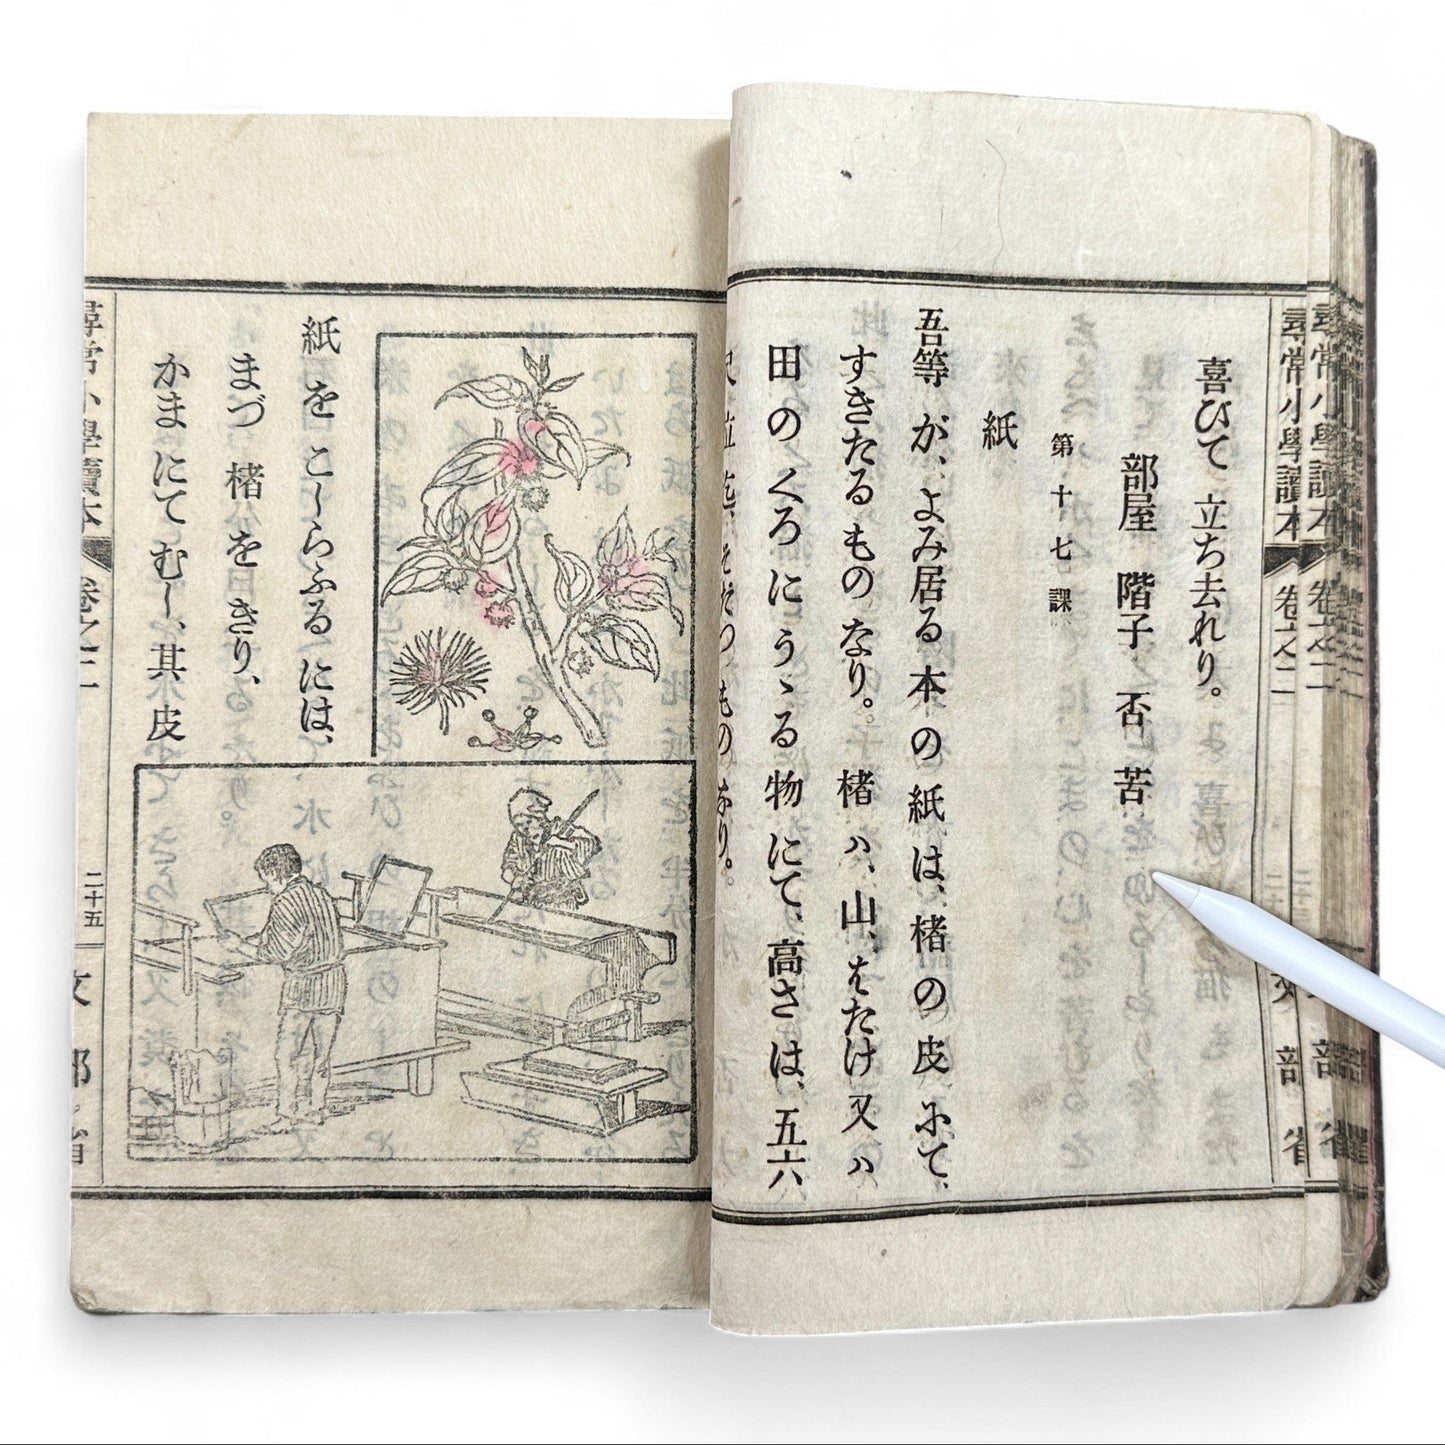 喜びて立ち去れり。
部屋 階子 否 苦
第十七課
紙
吾等が、よみ居る本の紙は、楮の皮にて、
すきたるものなり。楮ハ、山、はたけ又ハ
田のくろにうゝる物にて、高さは、五六
尺位迄、そだつものなり。
紙をこしらふるには、
まづ楮をきり、
かまにてむし、其皮
尋常小學讀本
卷之二
二十五
文部省
尋常小學讀本
卷之二
部省
尋常小學讀本
卷之二
部省